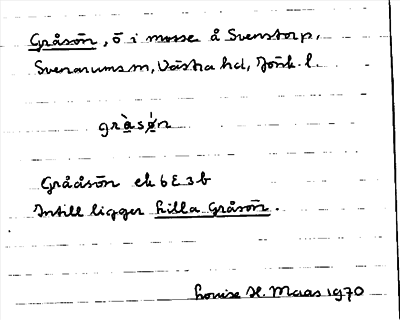 Gråsön, ö i mosse å Svenstorp,
Svenarums sn, Västra hd, Jönk. l.
gràsø̀n
Grååsön ek 6E3b
Intill ligger Lilla Gråsön.
Louise H. Maas 1970